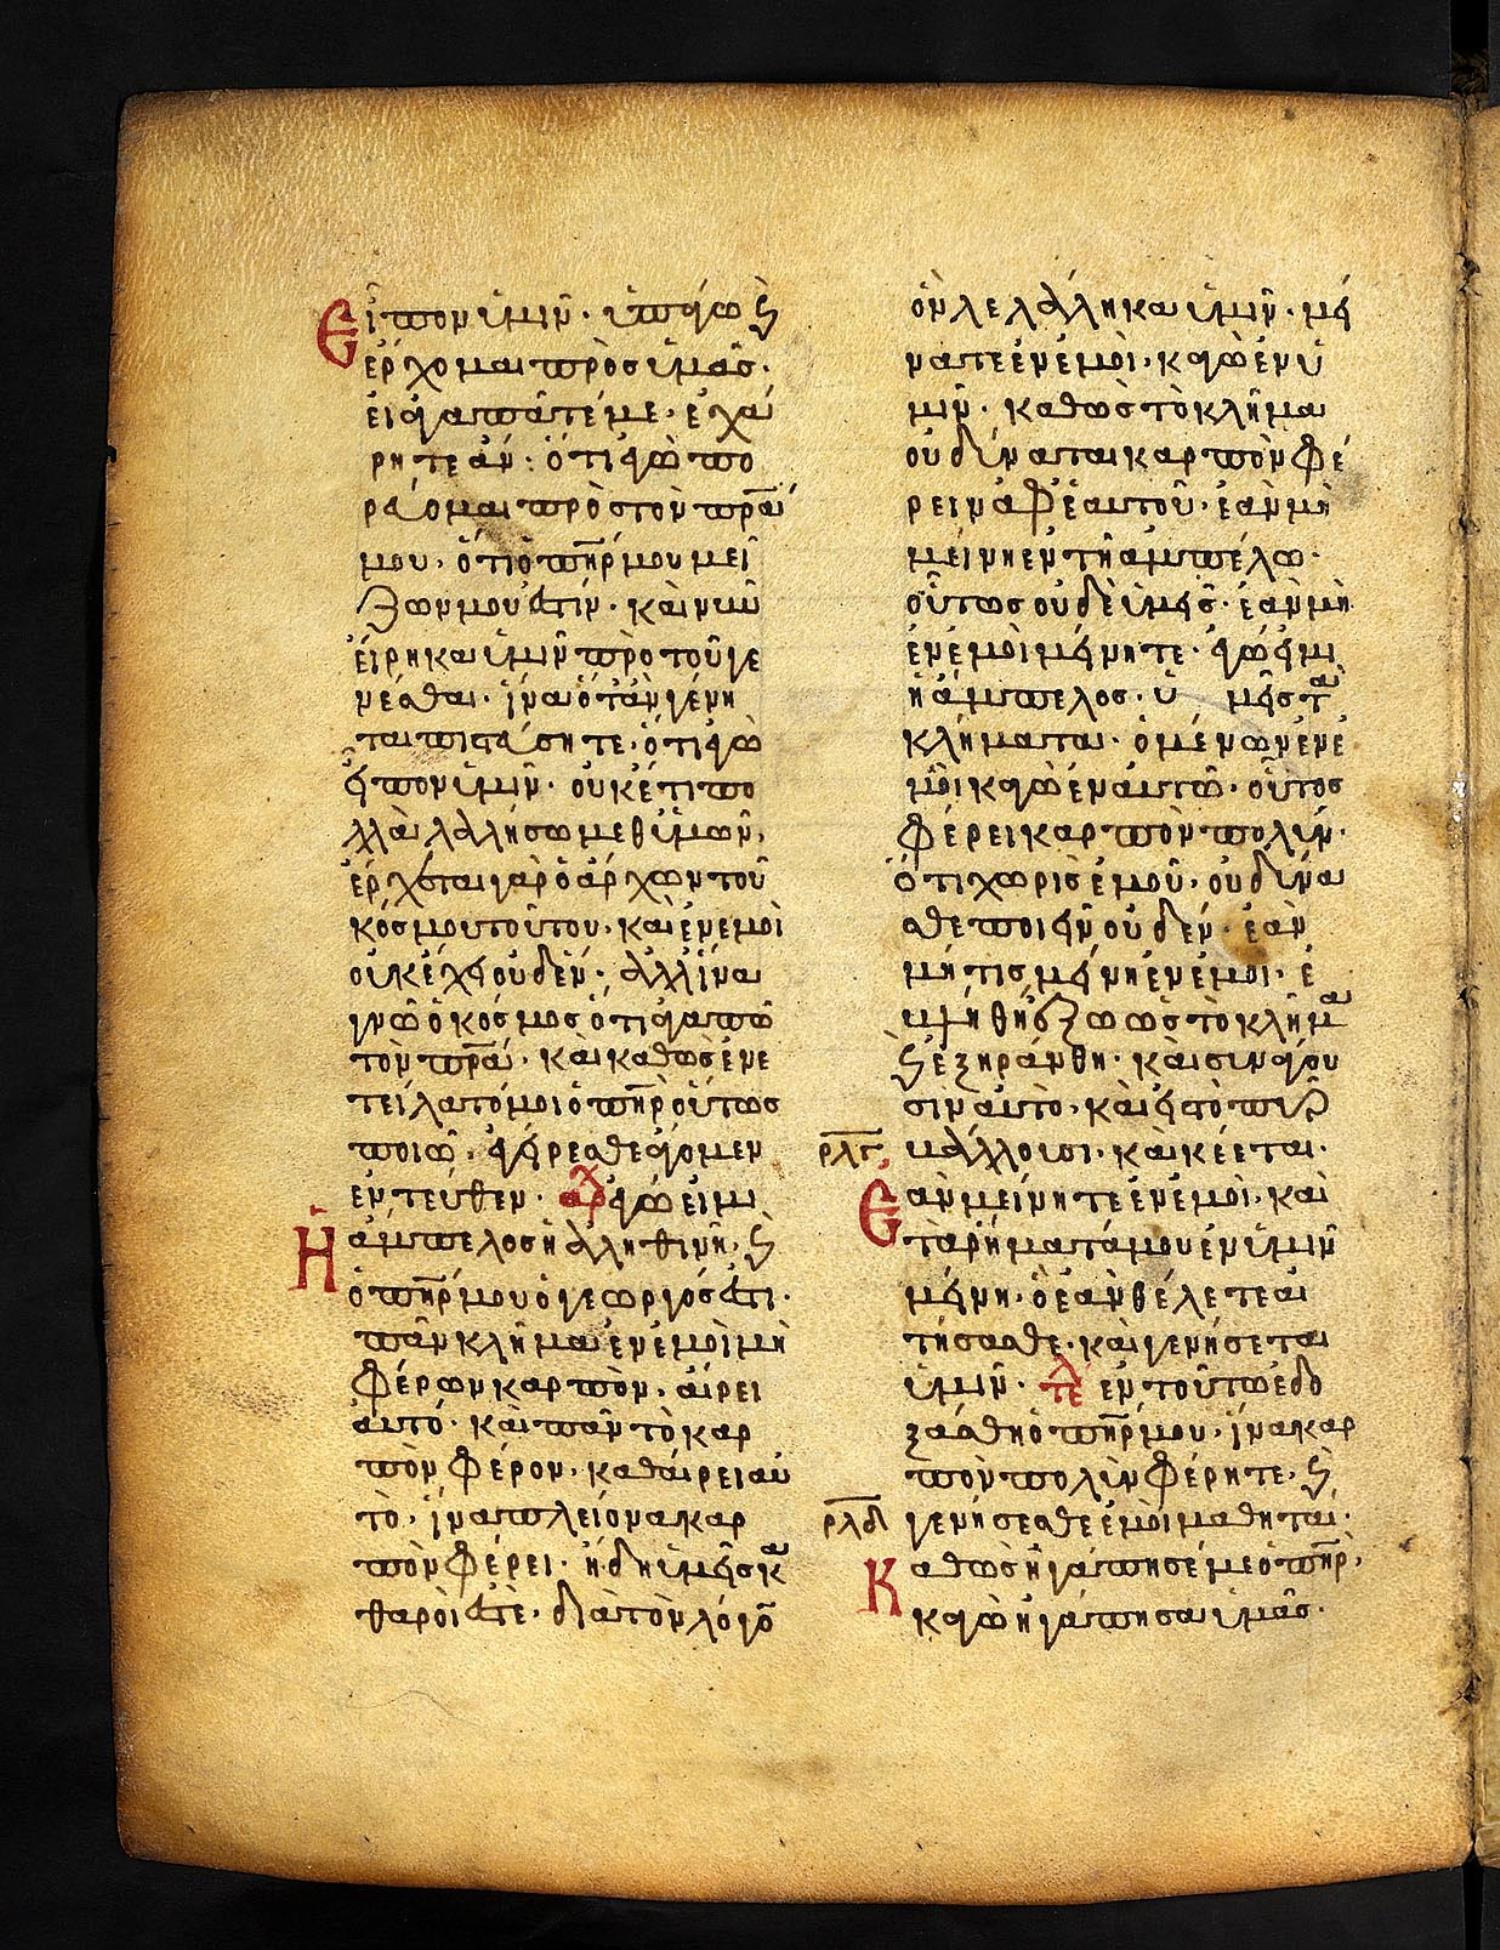 Εἶπον ὑμῖν· ὑπάγω ϗ
ἔρχομαι πρὸς ὑμᾶς·
εἰ ἠγαπᾶτέ με· ἐχά
ρητε ἄν· ὅτι ἐγὼ πο
ρεύομαι πρὸς τὸν πρ̅α
μου· ὅτι ὁ πη̅ρ μου μεί
ζων μου ἐστίν· καὶ νῦν
εἴρηκα ὑμῖν πρὸ τοῦ γε
νέσθαι· ἵνα ὅταν γένη
ται πιστεύσητε· ὅτι ἐγὼ
εἶπον ὑμῖν· οὐκέτι πο
λλὰ λαλήσω μεθ ὑμῶν·
ἔρχεται γὰρ ὁ ἄρχων τοῦ
κόσμου τούτου· καὶ ἐν ἐμοὶ
οὐκ ἔχει οὐδέν· ἀλλ ἵνα
γνῶ ὁ κόσμος ὅτι ἀγαπῶ
τὸν πρ̅α· καὶ καθὼς ἐνε
τείλατό μοι ὁ πη̅ρ οὕτως
ποιῶ· ἐγείρεσθε ἄγομεν
ἐντεύθεν· αρχ ἐγώ εἰμι
Ἡ ἄμπελος ἡ ἀληθινή· ϗ
ὁ πη̅ρ μου ὁ γεωργός ἐστι·
πᾶν κλῆμα ἐν ἐμοὶ μὴ
φέρων καρπὸν· αἴρει
αὐτό· καὶ πᾶν τὸ καρ
πὸν φέρον· καθαίρει αὐ
τὸ· ἵνα πλείονα καρ
πὸν φέρει· ἤδη ὑμεῖς κα
θαροί ἐστε· διὰ τὸν λόγο̅
ὃν λελάληκα ὑμῖν· μεί
νατε ἐν ἐμοί· κἀγὼ ἐν ὑ
μῖν· καθὼς τὸ κλῆμα
οὐ δύναται καρπὸν φέ
ρειν ἀφ ἑαυτοῦ· ἐὰν μὴ
μείνη ἐν τῆ ἀμπέλω·
οὕτως οὐδὲ ὑμεῖς· ἐὰν μὴ
ἐν ἐμοὶ μείνητε· ἐγώ εἰμι
ἡ ἄμπελος· ὑ μεῖς τὰ
κλήματα· ὁ μένων ἐν ἐ
μοὶ κἀγὼ ἐν αὐτῶ· οὗτος
φέρει καρπὸν πολύν·
ὅτι χωρὶς ἐμοῦ· οὐ δύνα
σθε ποιεῖν οὐδέν· ἐὰν
μή τις μείνη ἐν ἐμοι· ἐ
βλήθη ἔξω ὡς τὸ κλῆμα
ϗ ἐξηράνθη· καὶ συνάγου
σιν αὐτὸ· καὶ εἰς τὸ πῦρ
βάλλουσι· καὶ κέεται·
ρλγ
Ἐὰν μείνητε ἐν ἐμοὶ· καὶ
τὰ ῥήματά μου ἐν ὑμῖν
μείνη· ὃ ἐὰν θέλετε αἰ
τήσασθε· καὶ γενήσεται
ὑμῖν· τελ ἐν τούτω ἐδο
ξάσθη ὁ πη̅ρ μου· ἵνα καρ
πὸν πολὺν φέρητε· ϗ
ρλδ
γενήσεσθε ἐμοὶ μαθηταί·
Καθὼς ἠγάπησέ με ὁ πη̅ρ·
κἀγὼ ἠγάπησα ὑμᾶς·